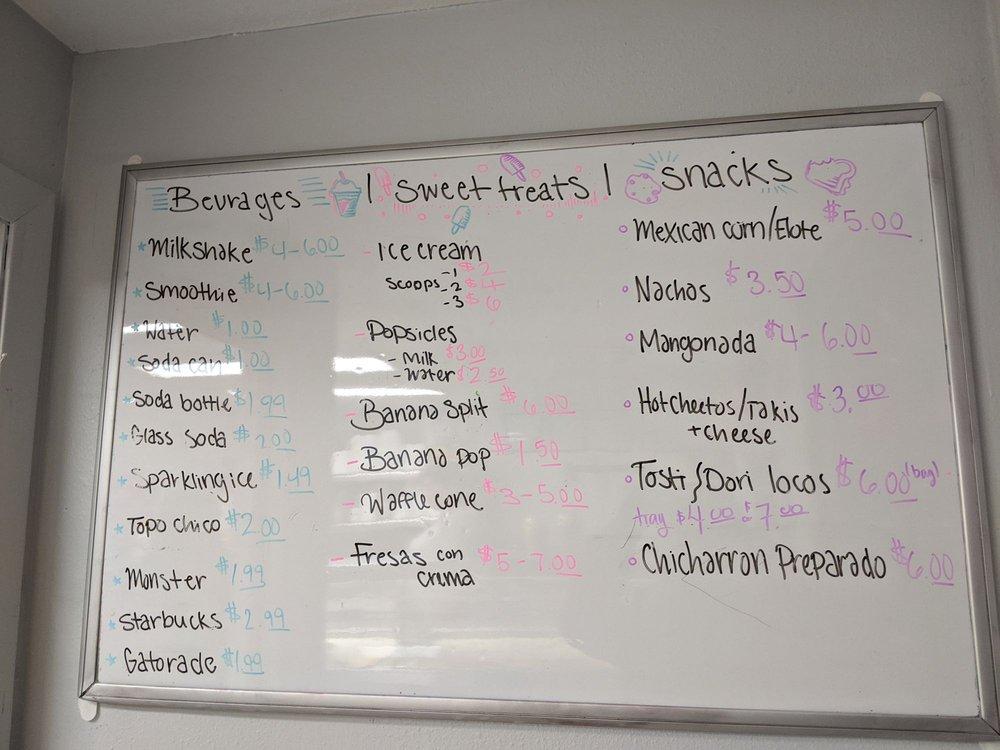 Bevrages
* Milkshake $4-6.00
* Smoothie $4-6.00
* Water $1.00
* Soda can $1.00
* Soda bottle $1.99
* Glass Soda $2.00
* Sparkling ice $1.49
* Topo chico $2.00
* Monster $1.99
* Starbucks $2.99
* Gatorade $1.99
| Sweet treats |
- Ice cream
Scoops -1 $2
-2 $4
-3 $6
- Popsicles
- Milk $3.00
- Water $2.50
- Banana Split $6.00
- Banana pop $1.50
- Waffle cone $3-5.00
- Fresas con $5-7.00
crema
Snacks
◦ Mexican corn/Elote $5.00
◦ Nachos $3.50
◦ Mangonada $4-6.00
◦ Hot cheetos/Takis $3.00
+cheese
◦ Tosti/Dori locos $6.00 (bag)
tray $4.00 $7.00
◦ Chicharron Preparado $6.00